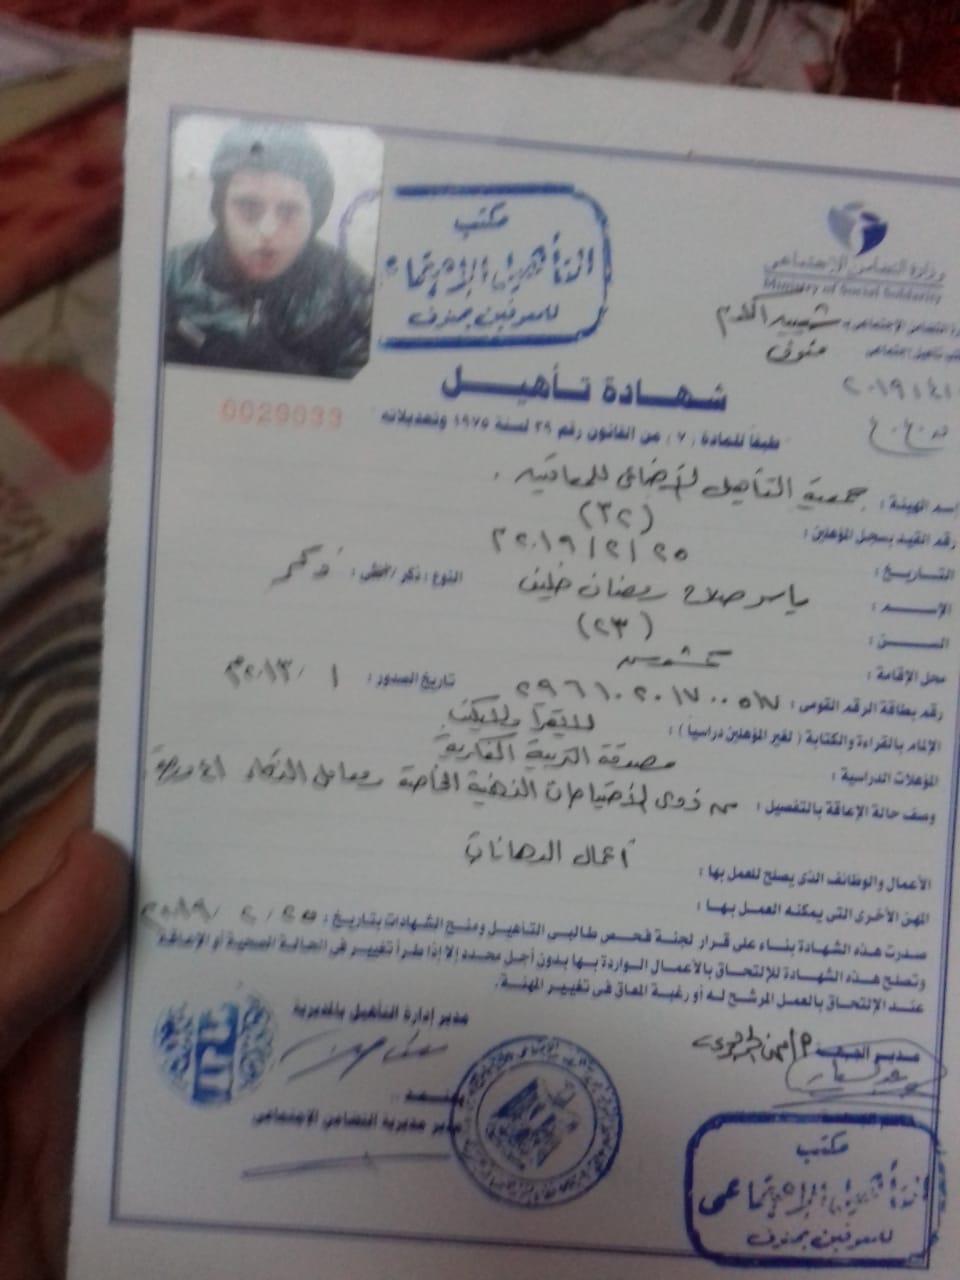 مكتب
التأهيل الإجتماعى
للمعوقين بمنوف
وزارة التضامن الإجتماعى
Ministry of Social Solidarity
منوف
شهادة تأهيل
0029033
طبقاً للمادة (٧) من القانون رقم ٣٩ لسنة ١٩٧٥ وتعديلاته
إسم الهيئة : جمعية التأهيل الإجتماعى للمعاقين .
رقم القيد بسجل المؤهلين : (٣٢)
التاريخ : ٢٠١٩/٢/٢٥
الإسم : ياسر صلاح رمضان خليف النوع : ذكر / أنثى : ذكر
السن : (٢٣)
محل الإقامة :
رقم بطاقة الرقم القومى : تاريخ الصدور :
الإلمام بالقراءة والكتابة ( لغير المؤهلين دراسياً ) : لا يقرأ ولا يكتب
المؤهلات الدراسية : مصدقة التربية الفكرية
وصف حالة الإعاقة بالتفصيل : من ذوى الإحتياجات الذهنية الخاصة ومعامل الذكاء
الأعمال والوظائف الذى يصلح للعمل بها : أعمال الدهانات
المهن الأخرى التى يمكنه العمل بها :
صدرت هذه الشهادة بناء على قرار لجنة فحص طالبى التأهيل ومنح الشهادات بتاريخ : ٢٠١٩/٢/٢٥
وتصلح هذه الشهادة للإلتحاق بالأعمال الواردة بها بدون أجل محدد إلا إذا طرأ تغيير فى الحالة الصحية أو الإعاقة
عند الإلتحاق بالعمل المرشح له أو رغبة المعاق فى تغيير المهنة.
مدير إدارة التأهيل بالمديرية
يعتمد ..
مدير مديرية التضامن الإجتماعى
مكتب
التأهيل الإجتماعى
للمعوقين بمنوف